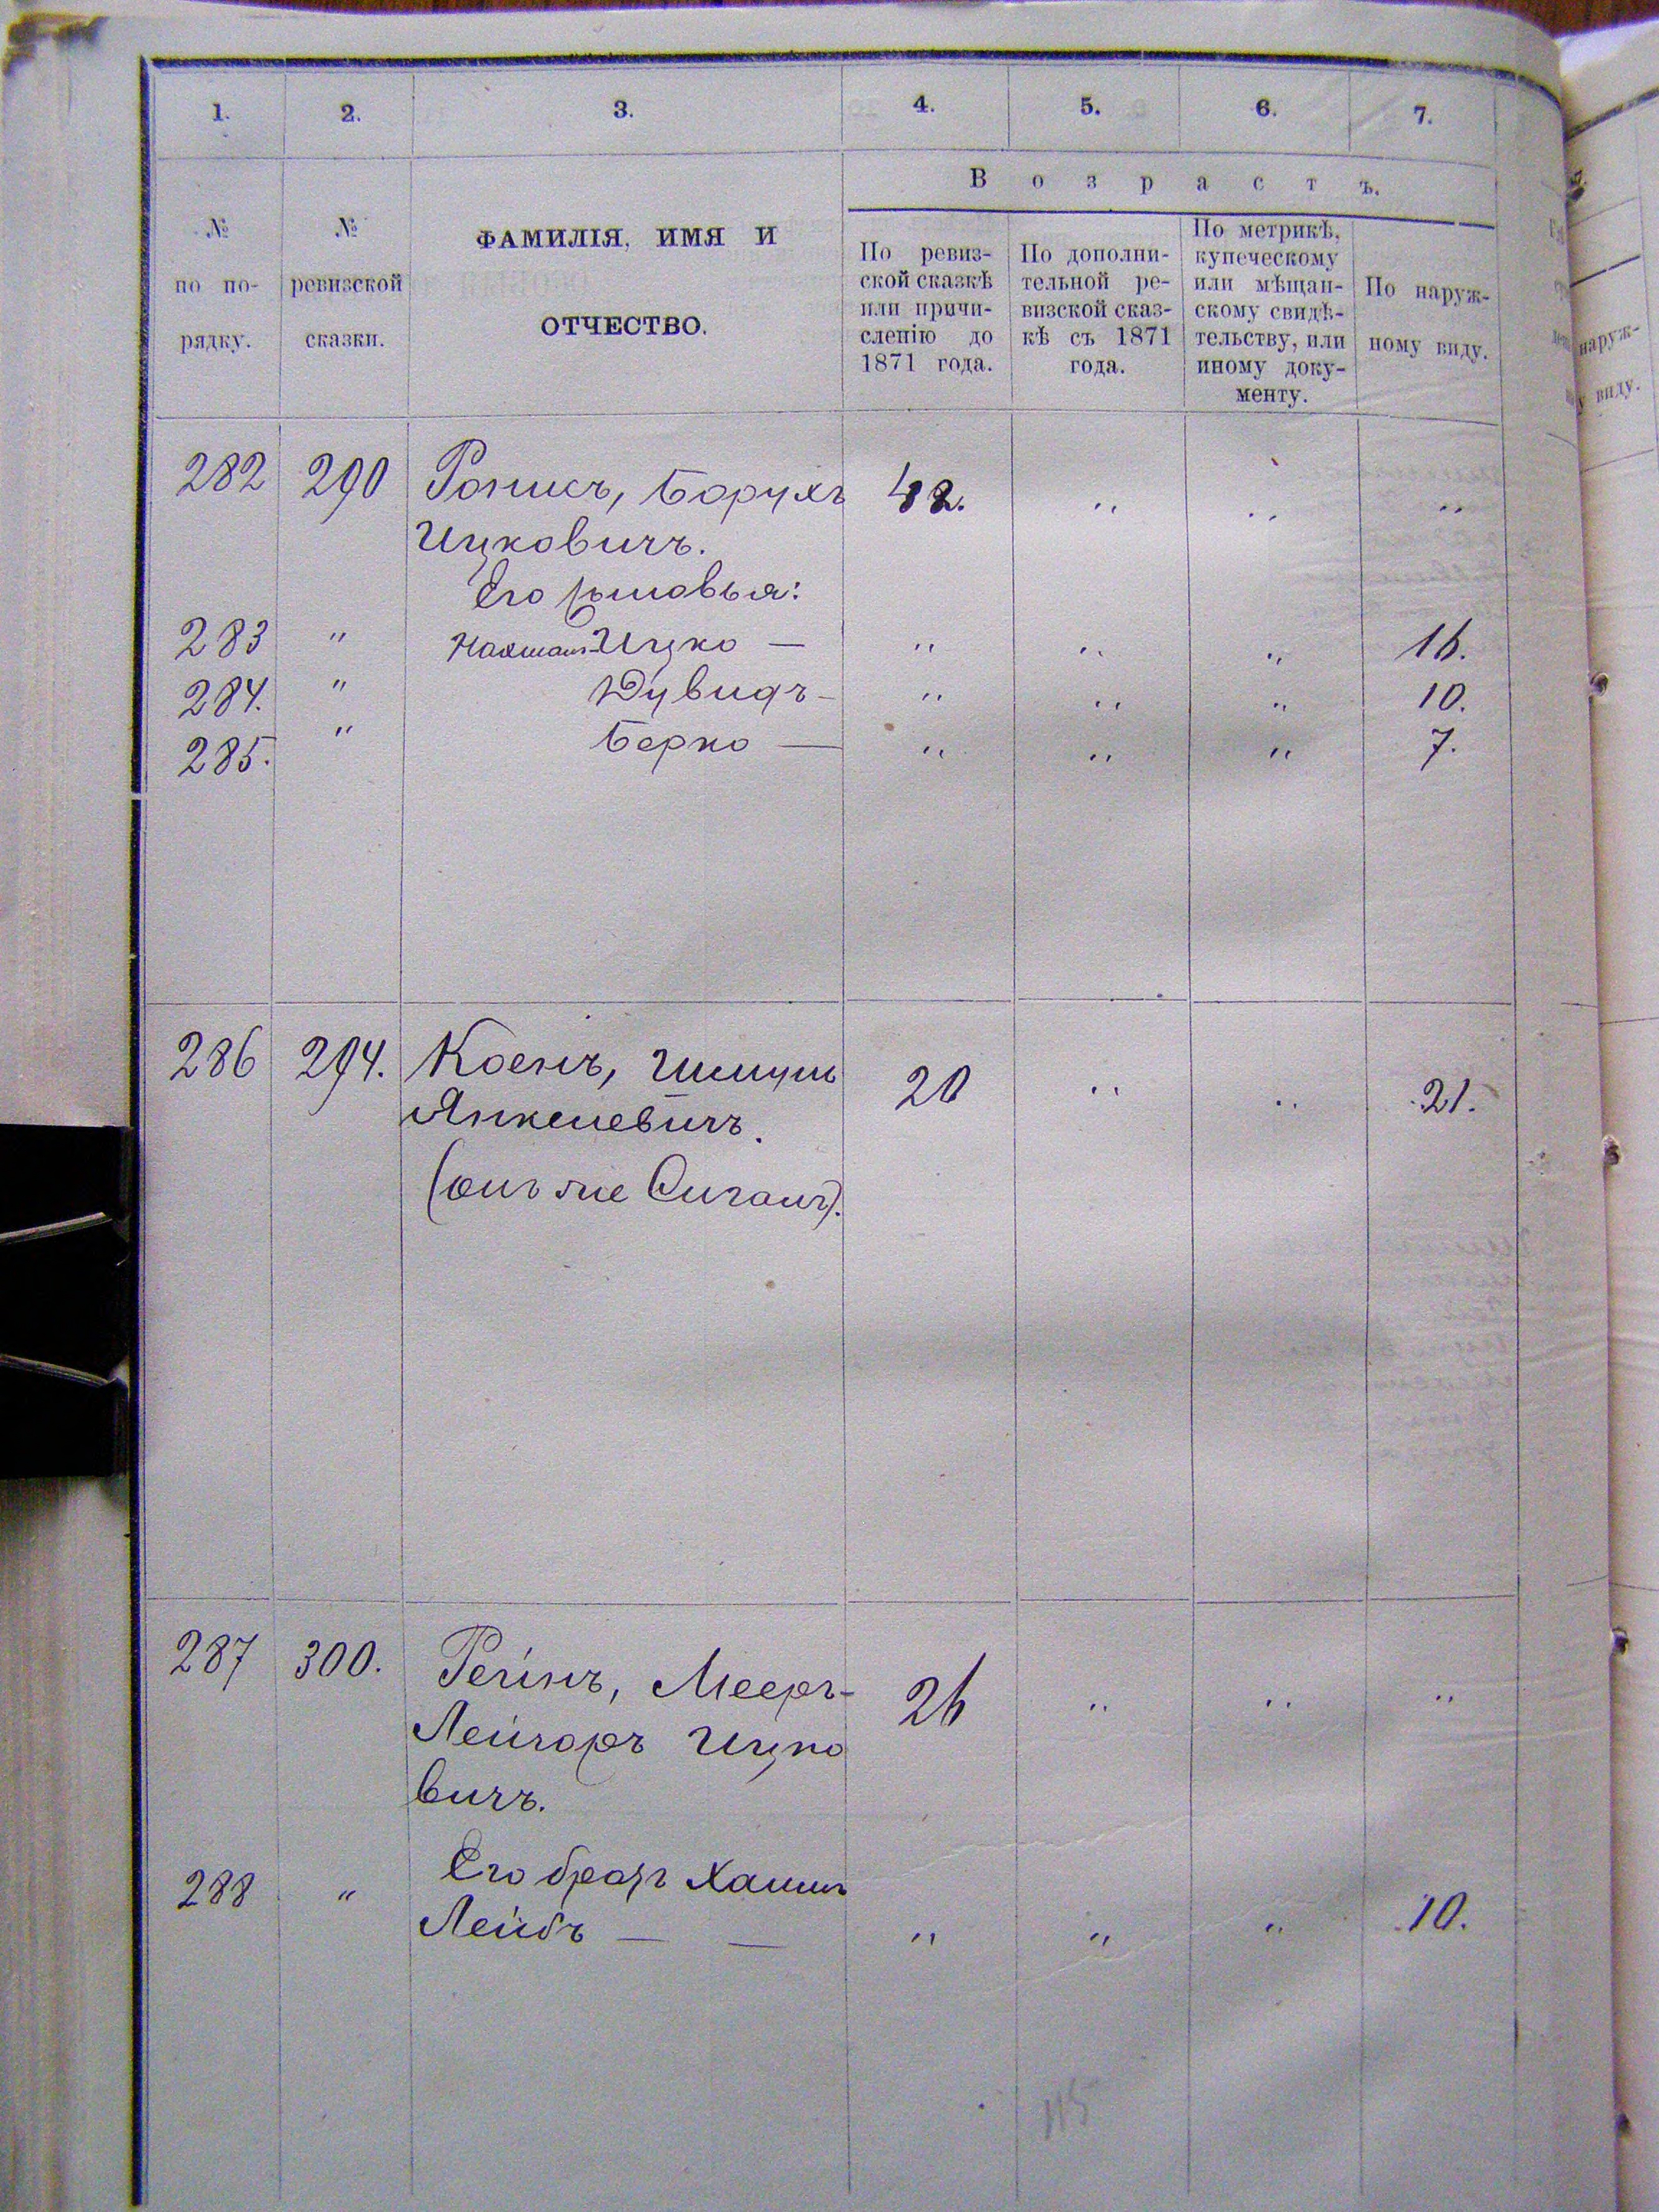 1. 2. 3. 4. 5. 6. 7.
№ по по-рядку.
№ ревизской сказки.
ФАМИЛІЯ, ИМЯ И
ОТЧЕСТВО.
Возрастъ.
По ревиз-
ской сказкѣ
или причи-
сленію до
1871 года.
По дополни-
тельной ре-
визской сказ-
кѣ съ 1871
года.
По метрикѣ,
купеческому
или мѣщан-
скому свидѣ-
тельству, или
иному доку-
менту.
По наруж-
ному виду.
282 290 Рописъ, Борухъ 42. „ „ „
Ицковичъ.
Его сыновья:
283 „ Нахманъ-Ицко — „ „ „ 16.
284. „ Дувидъ — „ „ „ 10.
285. „ Берко — „ „ „ 7.
286 294. Коенъ, 20 „ „ 21.
Янкелевичъ.
(онъ же Сиганъ).
287 300. Рейнъ, Мееръ- 26 „ „ „
Лейзоръ Ицко
вичъ.
Его братъ Хаимъ
288 „ Лейбъ — — „ „ „ 10.
115
наруж-
у виду.